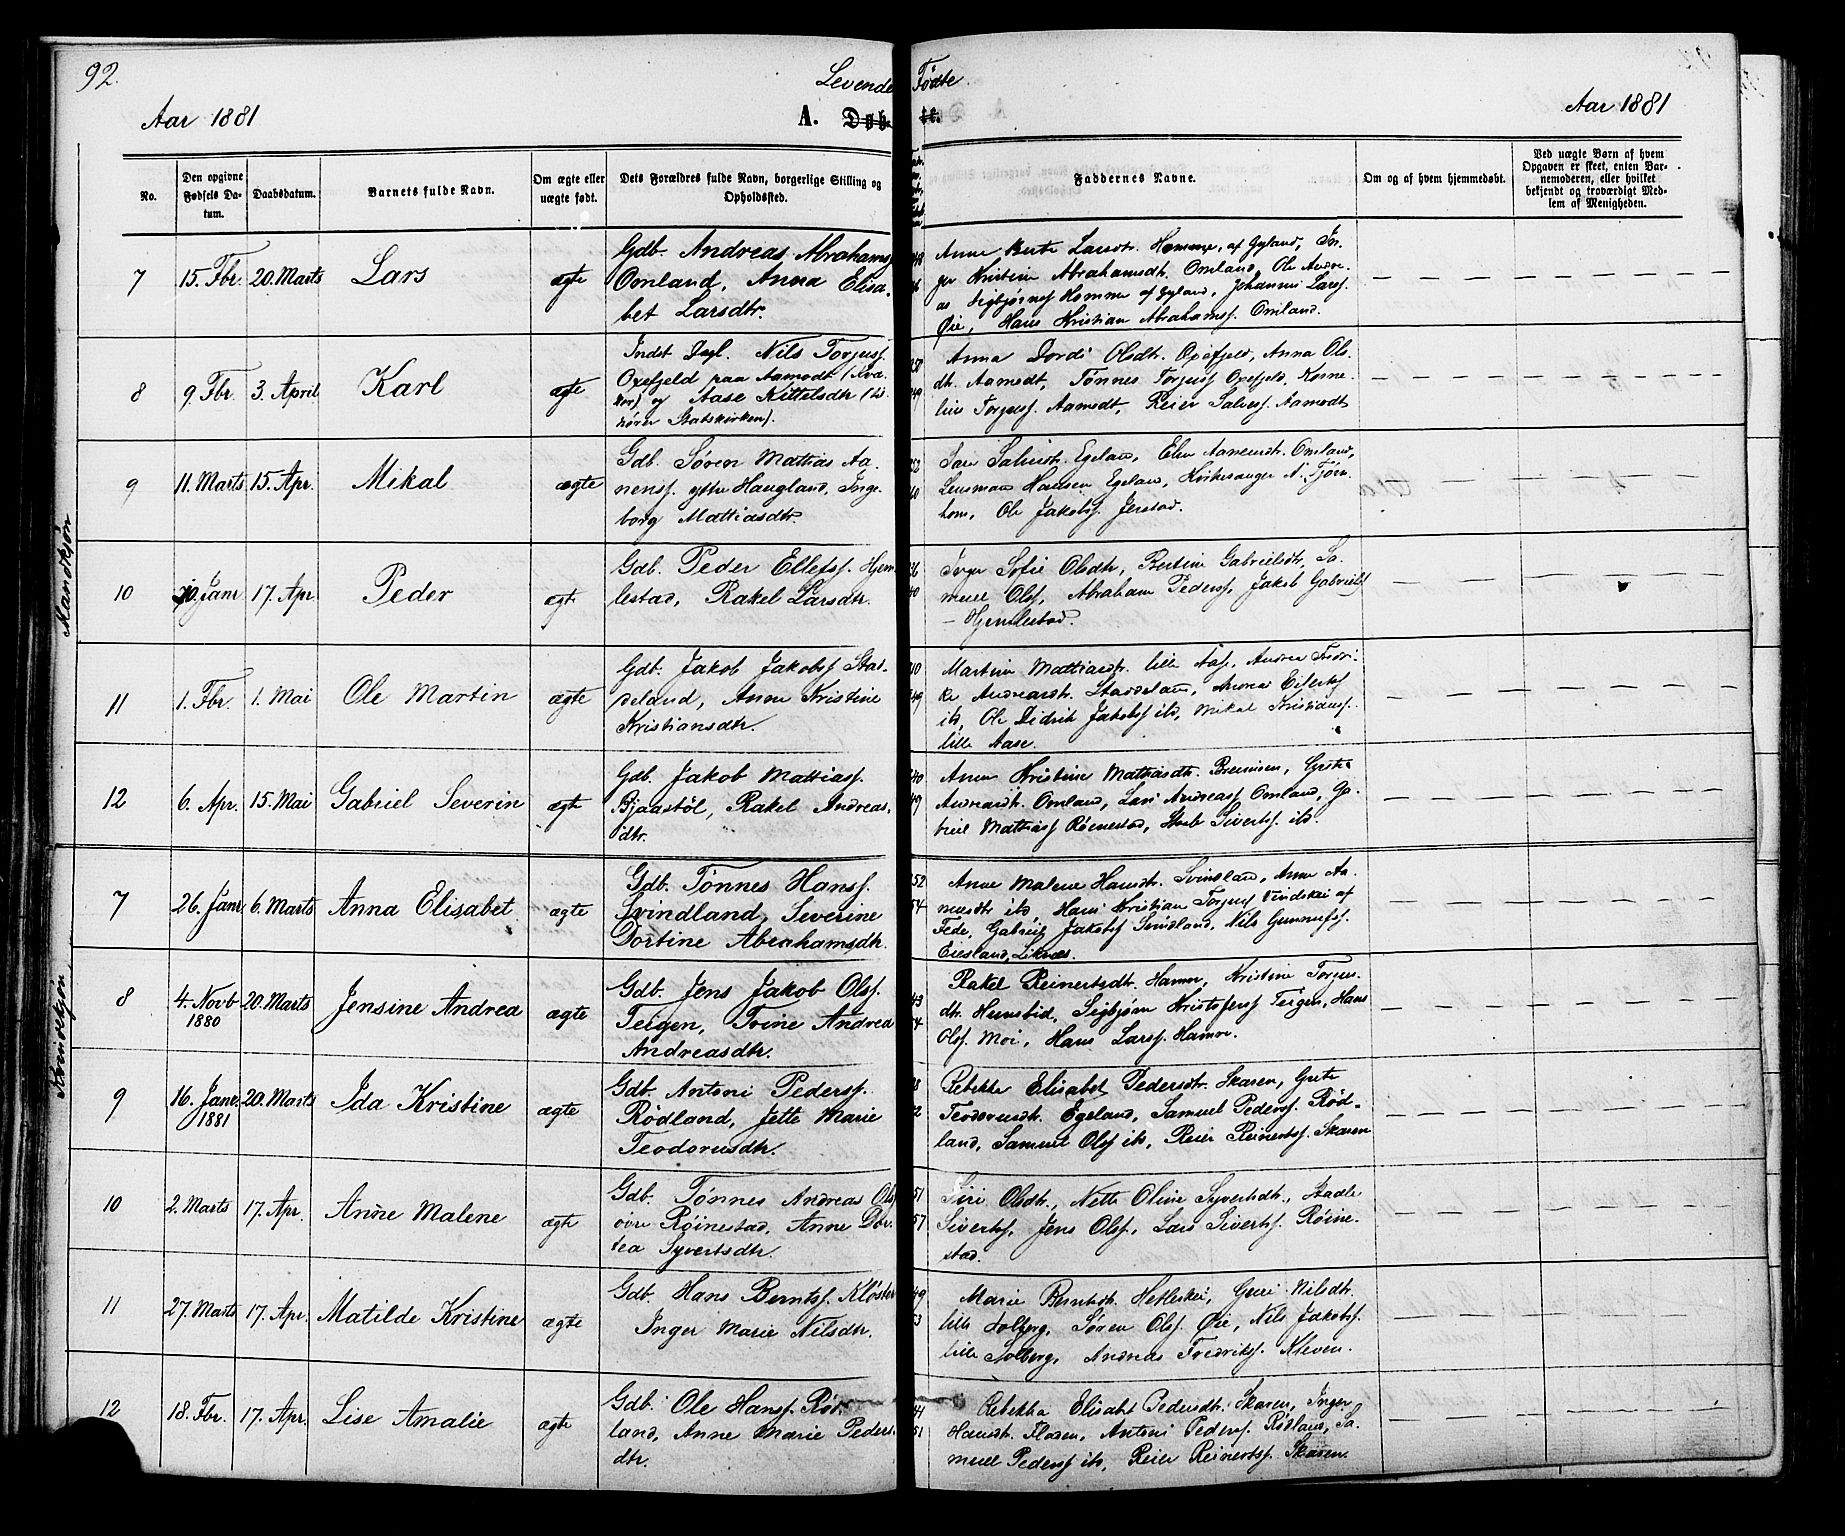 92.
Levende Fødte
Aar 1881
A. Døbte.
Aar 1881
No.
Den opgivne Fødsels Datum.
Daabsdatum.
Barnets fulde Navn.
Om ægte eller uægte født.
Dets Forældres fulde Navn, borgerlige Stilling og Opholdssted.
Faddernes Navne.
Om og af hvem hjemmedøbt.
Ved uægte Børn af hvem
Opgaven er skeet, enten Bar-
nemoderen, eller hvilket
bekjendt og troværdigt Med-
lem af Menigheden.
Mandkjøn
7 15. Fbr. 20. Marts Lars ægte
Gdb. Andreas Abrahams.
Omland, Anna Elisa-
bet Larsdtr.
Anne Berte Larsdtr. Homme, af Gyland, In-
ger Kristine Abrahamsdtr. Omland, Ole Andre-
as Sigbjørnss Homme af Gyland, Johannes Larss.
Øie, Hans Kristian Abrahamss. Omland.
8 9. Fbr. 3. April Karl ægte
Indst Dagl. Nils Torjuss.
Oxefjeld paa Aamodt (Kvæ-
ker) og Aase Kittelsdtr (til-
hører Statskirken).
Anna Dordi Olsdtr. Oxefjeld, Anna Ols-
dtr. Aamodt, Tønnes Torjuss Oxefjeld, Korne-
lius Torjuss. Aamodt, Reier Salvess. Aamodt
9 11. Marts 15. Apr. Mikal ægte
Gdb. Søren Mattias Aa-
nenss. ytre Haugland, Inge-
borg Mattiasdtr.
Salvesdtr. Egeland, Elen Aanensdtr. Omland,
Lensmand Hansen Egeland, Kirkesanger N. Tjørn-
hom, Ole Jakobss. Jerstad.
10 30. Janr. 17. Apr. Peder ægte
Gdb. Peder Ellefss. Hjem-
lestad, Rakel Larsdtr.
Inger Sofie Olsdtr, Bertine Gabrielsdtr, Sa-
muel Olss, Abraham Pederss, Jakob Gabrielss
— Hjemlestad.
11 1. Fbr. 1. Mai Ole Martin ægte
Gdb. Jakob Jakobss Stad-
deland, Anne Kristine
Kristiansdtr.
Martine Mattiasdtr. lille Aase, Andrea Fredri-
ke Andreasdtr. Staddeland, Eilertss
ibd, Ole Didrik Jakobss ibd, Mikal Kristianss.
lille Aase.
12 6. Apr. 15. Mai Gabriel Severin ægte
Gdb. Jakob Mattiass.
Bjaastøl, Rakel Andreas-
dtr.
Anne Kristine Mathiasdtr. Brennsen,
Andreasdtr. Omland, Lars Andreass Omland, Ga-
briel Mathiass Røinestad, Sivertss. ibd.
Kvindekjøn
7 26. Janr. 6. Marts Anna Elisabet ægte
Gdb. Tønnes Hanss.
Svindland, Severine
Dortine Abrahamsdtr.
Anne Malene Hansdtr. Svindland, Anne Aa-
nensdtr ibd, Hans Kristian Torjuss Vindskei af
Fede, Gabriel Jakobss Svindland, Nils Gunnufss.
Eiesland, Liknes.
8 4. Novb 1880 20. Marts Jensine Andrea ægte
Gdb. Jens Jakob Olss.
Teigen, Trine Andrea
Andreasdtr.
Rakel Reinertsdtr. Hamre, Kristine Torjus-
dtr. Humstød, Sigbjørn Kristoferss Teigen, Hans
Olss. Moi, Hans Larss. Hamre.
9 16. Janr. 1881 20. Marts Ida Kristine ægte
Gdb. Antoni Pederss.
Rødland, Jette Marie
Teodorusdtr.
Rebekka Elisabet Pedersdtr. Skaren, Grete
Teodorusdtr. Egeland, Samuel Pederss. Rød-
land, Samuel Olss ibd, Reier Reinertss. Skaren
10 2. Marts 17. Apr. Anne Malene ægte
Gdb. Tønnes Andreas Olss
øvre Røinestad, Anne Dor-
tea Syvertsdtr.
Siri Olsdtr., Nette Oline Syvertsdtr., Staale
Sivertss, Jens Olss, Lars Sivertss. Røine-
stad.
11 27. Marts 17. Apr. Matilde Kristine ægte
Gdb. Hans Berntss. Kløster
Inger Marie Nilsdtr.
Marie Berntsdtr. Hetleskei, Guri Nilsdtr.
lille Solberg, Søren Olss. Øie, Nils Jakobss.
lille Solberg, Andreas Fredrikss. Kleven.
12 18. Fbr. 17. Apr. Lise Amalie ægte
Gdb. Ole Hanss. Rød-
land, Anne Marie Peders-
dtr.
Rebekka Elisabet Pedersdtr. Skaren, Inger
Hansdtr. Floden, Antoni Pederss. Rødland, Sa-
muel Pederss ibd, Reier Reinertss. Skaren.